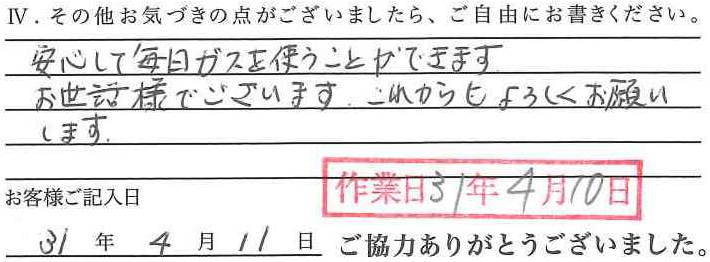 Ⅳ．その他お気づきの点がございましたら、ご自由にお書きください。
安心して毎日ガスを使うことができます
お世話様でございます。これからもよろしくお願い
します。
作業日31年4月10日
お客様ご記入日
31 年 4 月 11 日 ご協力ありがとうございました。